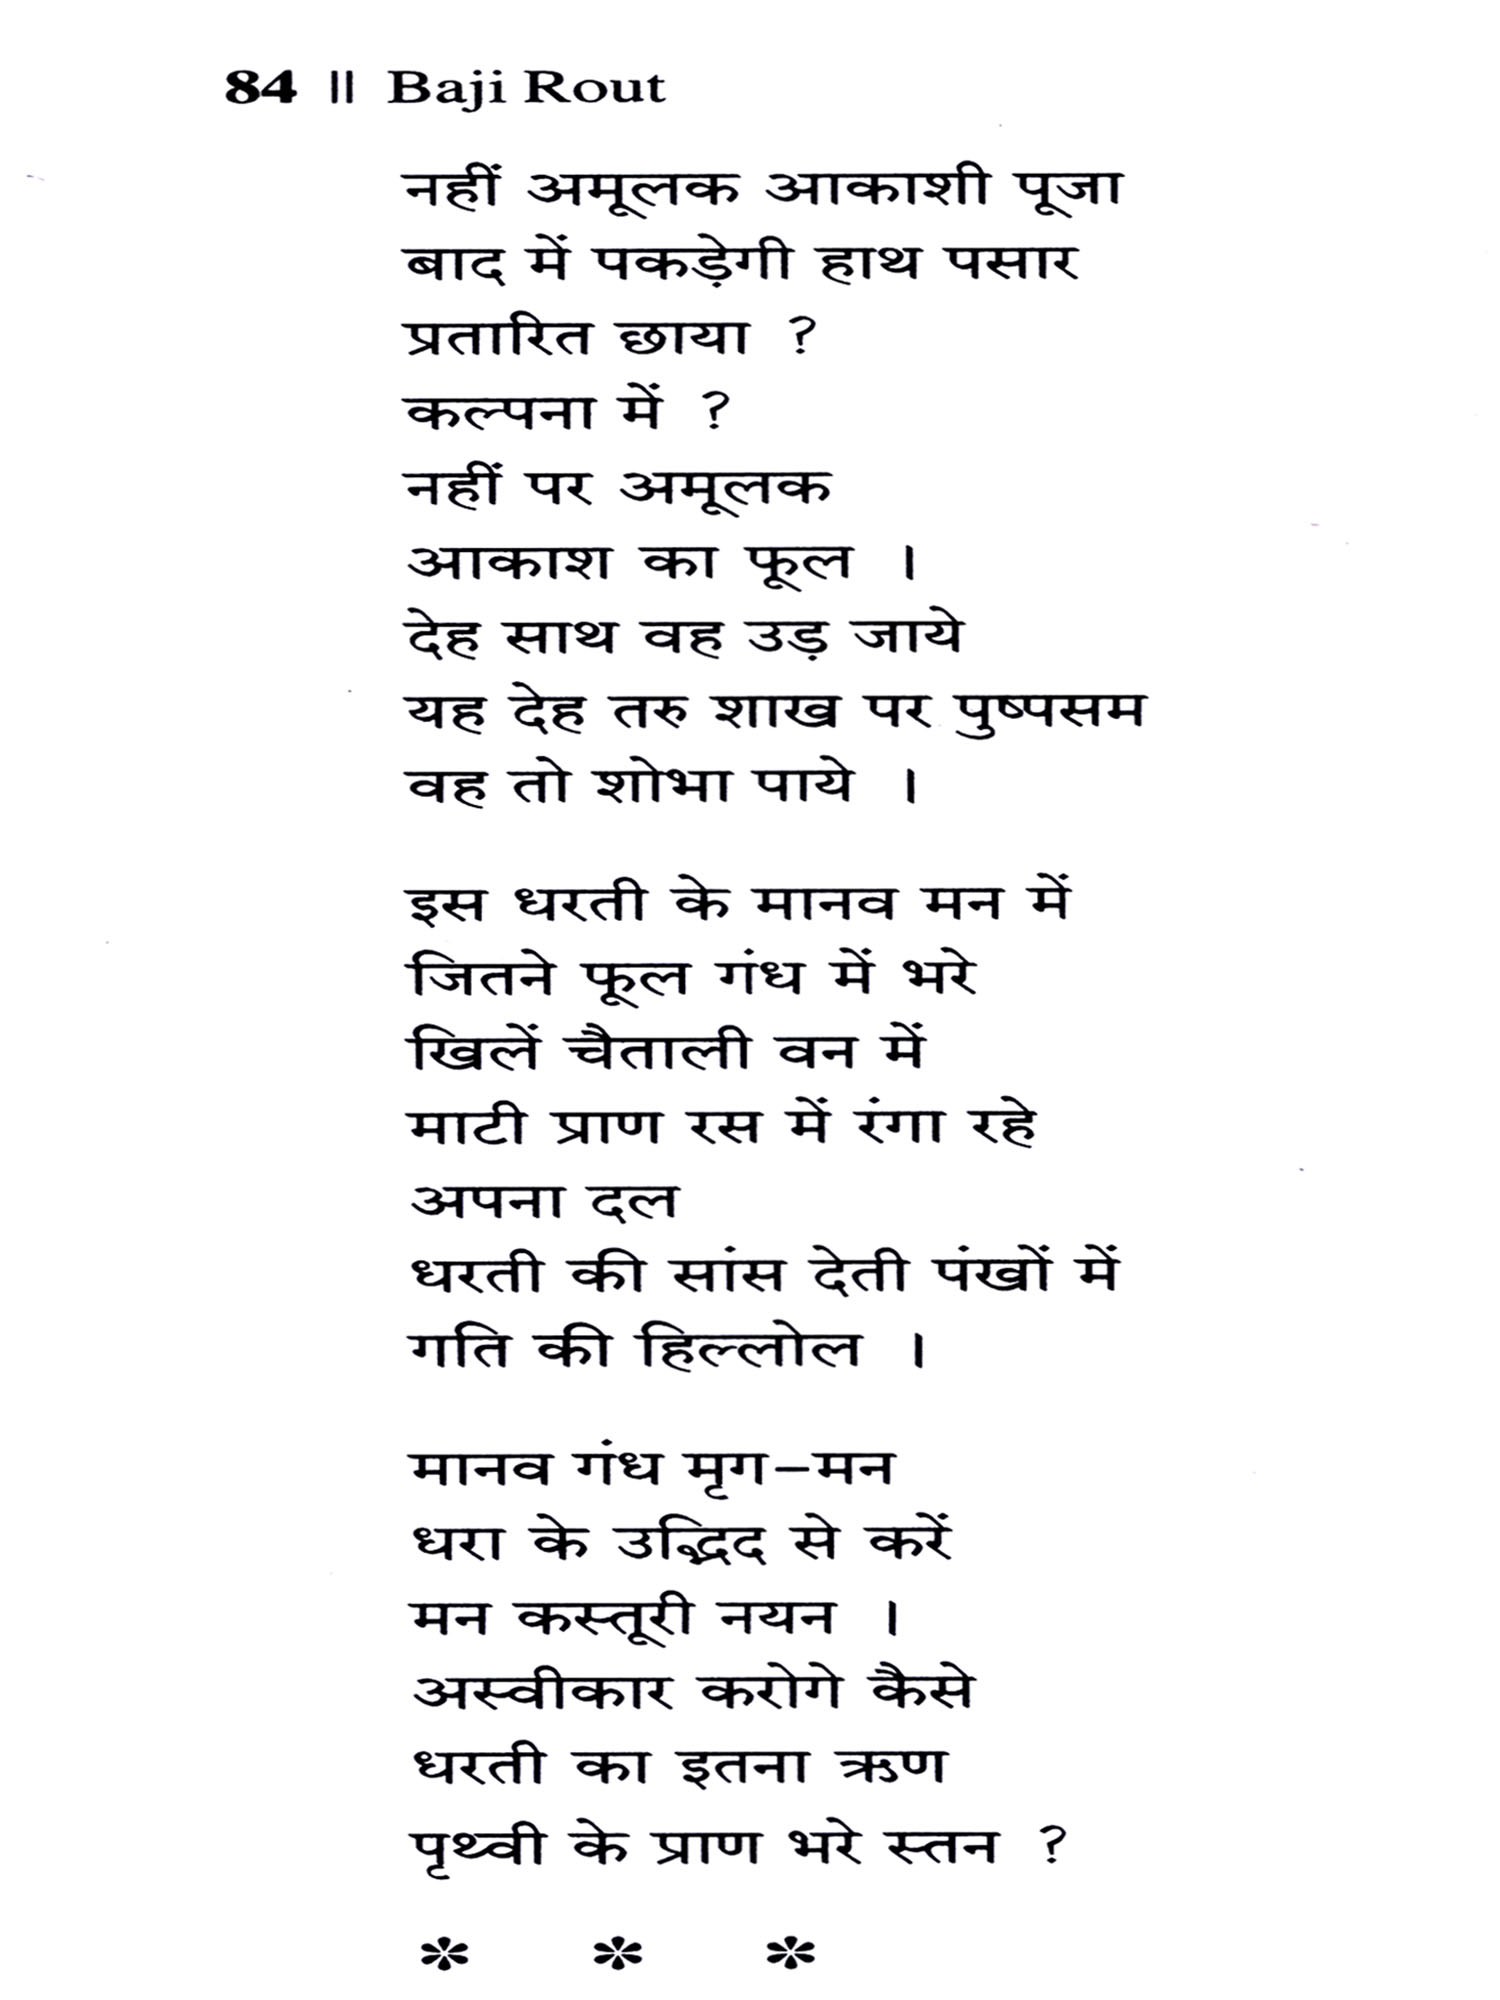 84 || Baji Rout
नहीं अमूलक आकाशी पूजा
बाद में पकड़ेगी हाथ पसार
प्रतारित छाया ?
कल्पना में ?
नहीं पर अमूलक
आकाश का फूल ।
देह साथ वह उड़ जाये
यह देह तरु शाख पर पुष्पसम
वह तो शोभा पाये ।
इस धरती के मानव मन में
जितने फूल गंध में भरे
खिलें चैताली वन में
माटी प्राण रस में रंगा रहे
अपना दल
धरती की सांस देती पंखों में
गति की हिल्लोल ।
मानव गंध मृग–मन
धरा के उद्भिद से करें
मन कस्तूरी नयन ।
अस्वीकार करोगे कैसे
धरती का इतना ऋण
पृथ्वी के प्राण भरे स्तन ?
* * *